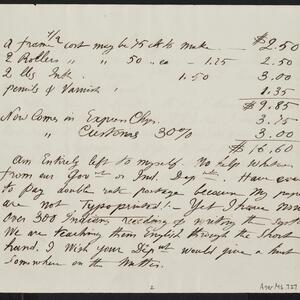 a frame 7/9 cost may be 75 cts to make — $2.50
2 Rollers " " 50 " ea — 1.25 2.50
2 lbs Ink. 1.50 3.00
pencils & Varnish " 1.35
$9.85
Now Comes in Express Chgs. 3.75
" Customs 30% 3.00
$16.60
Am Entirely left to myself. No help whatever
from our Govt or Ind. Dept. Have even
to pay double rate postage because My paper
are not Typoprinted! Yet I have Now
over 300 Indians reading & writing the system
We are teaching them English through the Short
hand. I wish your Dept would give a hint
Somewhere on the Matter.
2
Ayer MS 727